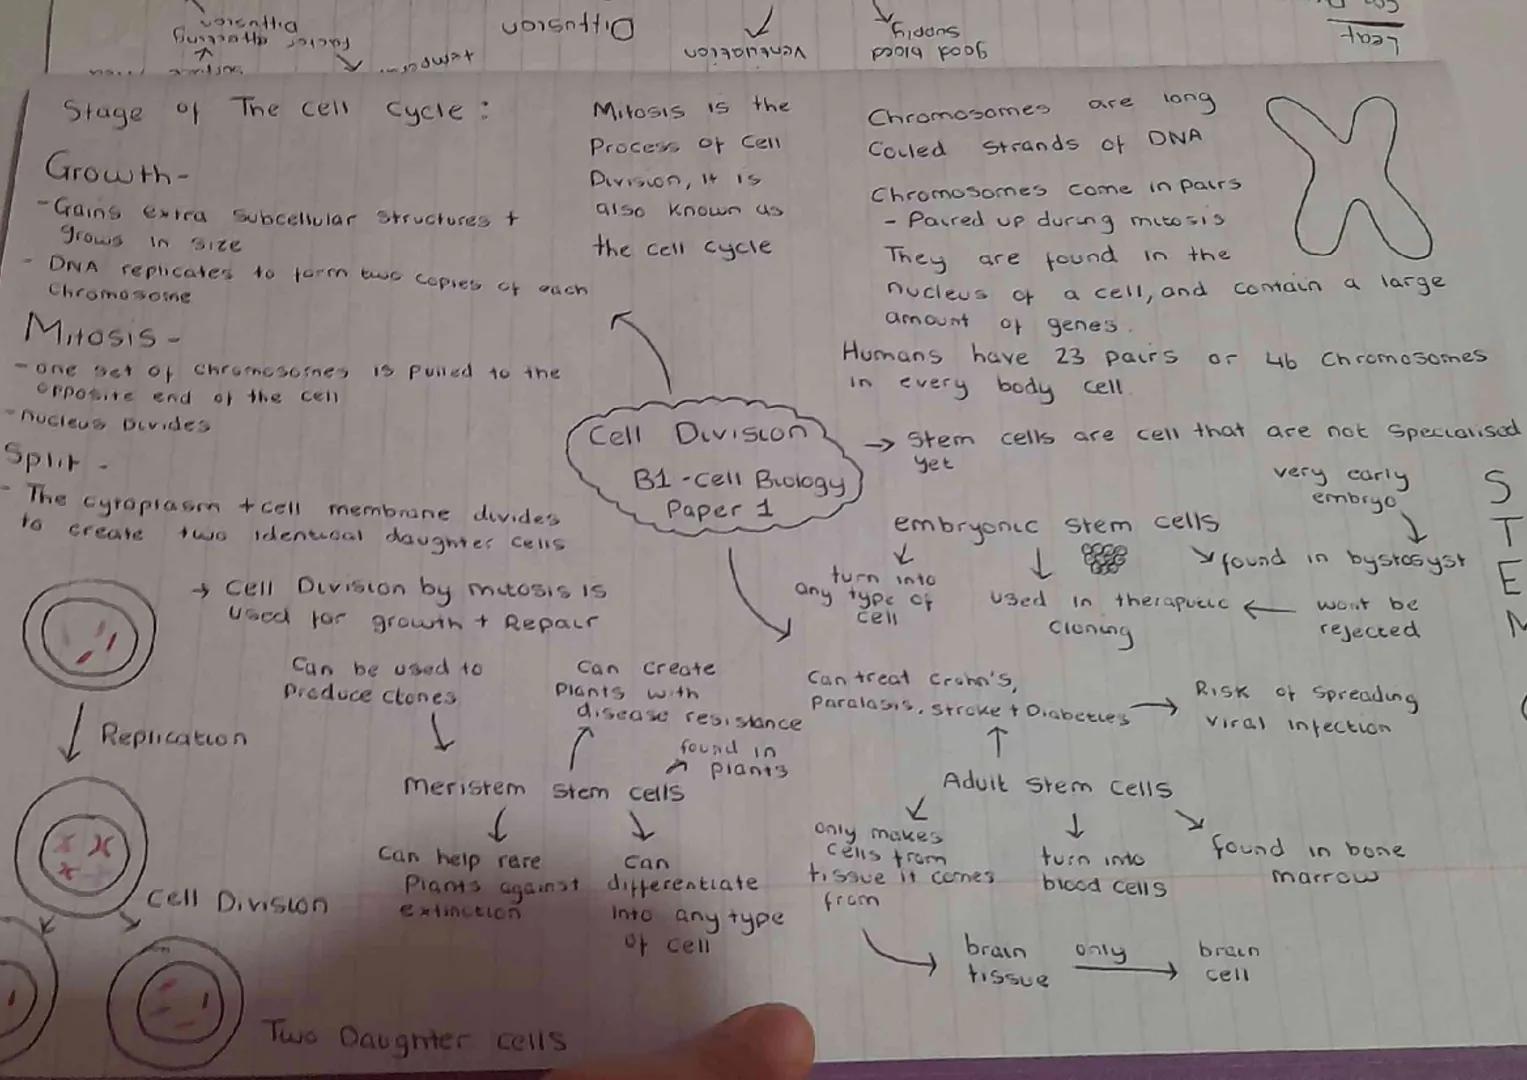 Leaf
good blood
supply
Ventilation
Diffusion
Factor affecting
Diffusion
Stage of The cell cycle:
Growth-
-Gains extra subcellular structures +
grows in size
- DNA replicates to form two copies of each
Chromosome
Mitosis -
- one set of chromosomes is pulled to the
opposite end of the cell
- nucleus Divides
Split -
- The cytoplasm + cell membrane divides
to create two identical daughter cells
Mitosis is the
Process of Cell
Division, it is
also known as
the cell cycle
Chromosomes are long
Coiled strands of DNA
Chromosomes come in pairs
- Paired up during mitosis
They are found in the
nucleus of a cell, and contain a large
amount of genes.
Humans have 23 pairs or 46 Chromosomes
in every body cell
Cell Division
B1 - Cell Biology
Paper 1
→ Stem cells are cell that are not specialised
yet
S
T
E
M
very early
embryo
embryonic stem cells
found in bystosyst
turn into
any type of
cell
used in theraputic ← wont be
cloning
rejected
→ Cell Division by mitosis is
used for growth + Repair
Can be used to
Produce clones
Can create
Plants with
disease resistance
found in
plants
Meristem Stem cells
Can help rare
Plants against
extinction
Can
differentiate
into any type
of cell
Can treat Crohn's,
Paralasis, stroke + Diabetes → Risk of spreading
viral infection
Adult stem cells
only makes
cells from
tissue it comes
from
turn into
blood cells
found in bone
marrow
brain
tissue
only
brain
cell
Replication
Cell Division
Two Daughter cells